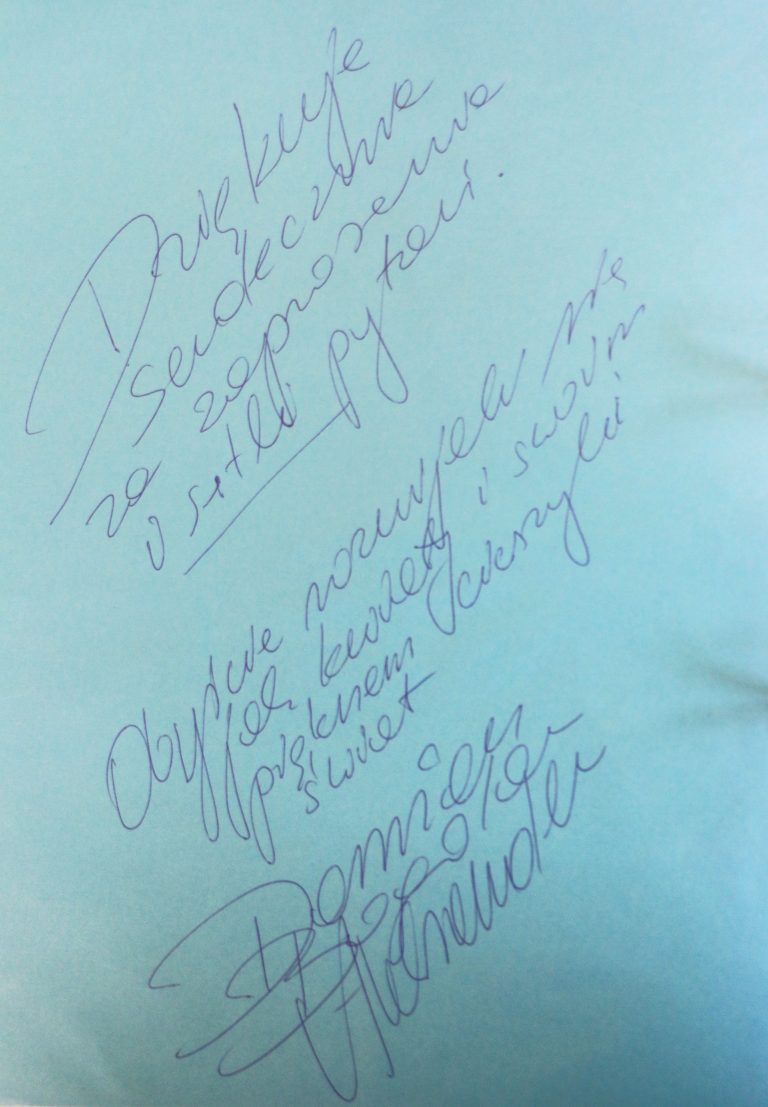 Dziękuję
serdecznie
za zaproszenie
i setki pytań.
Obyście rozwijali się
jak kwiaty i swoim
pięknem cieszyli
świat
Damian